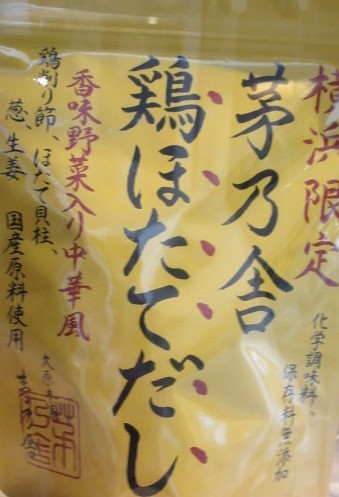 横浜限定
茅乃舎
化学調味料、
保存料無添加
鶏ほたてだし
香味野菜入り中華風
鶏削り節、ほたて貝柱、
葱、生姜 国産原料使用